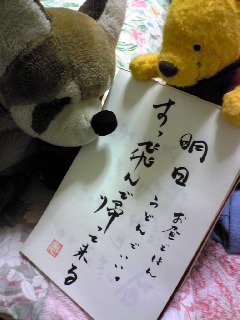 明日
お昼ごはん
うどんでいい。
すっ飛んで帰って来る